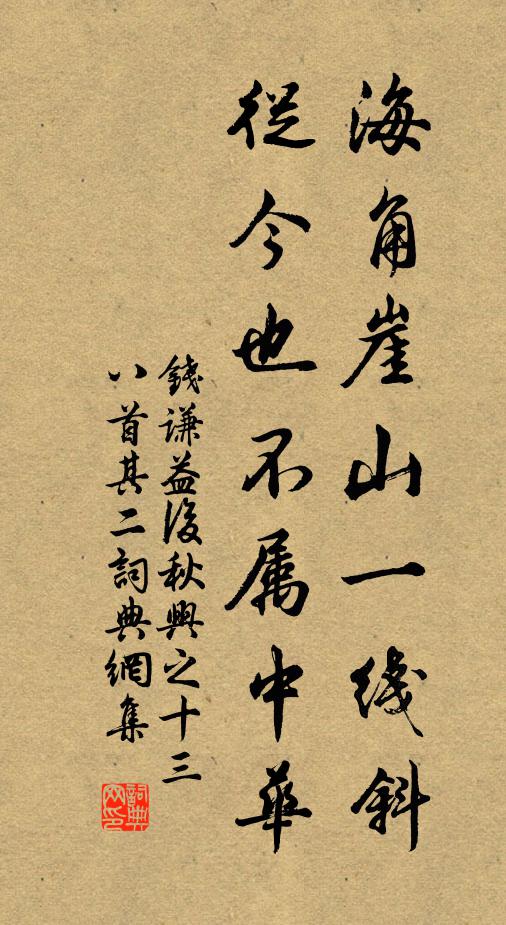 海角崖山一线斜
從今也不属中華
錢謙益後秋興之十三
八首其二詞典網集
詞典
网印